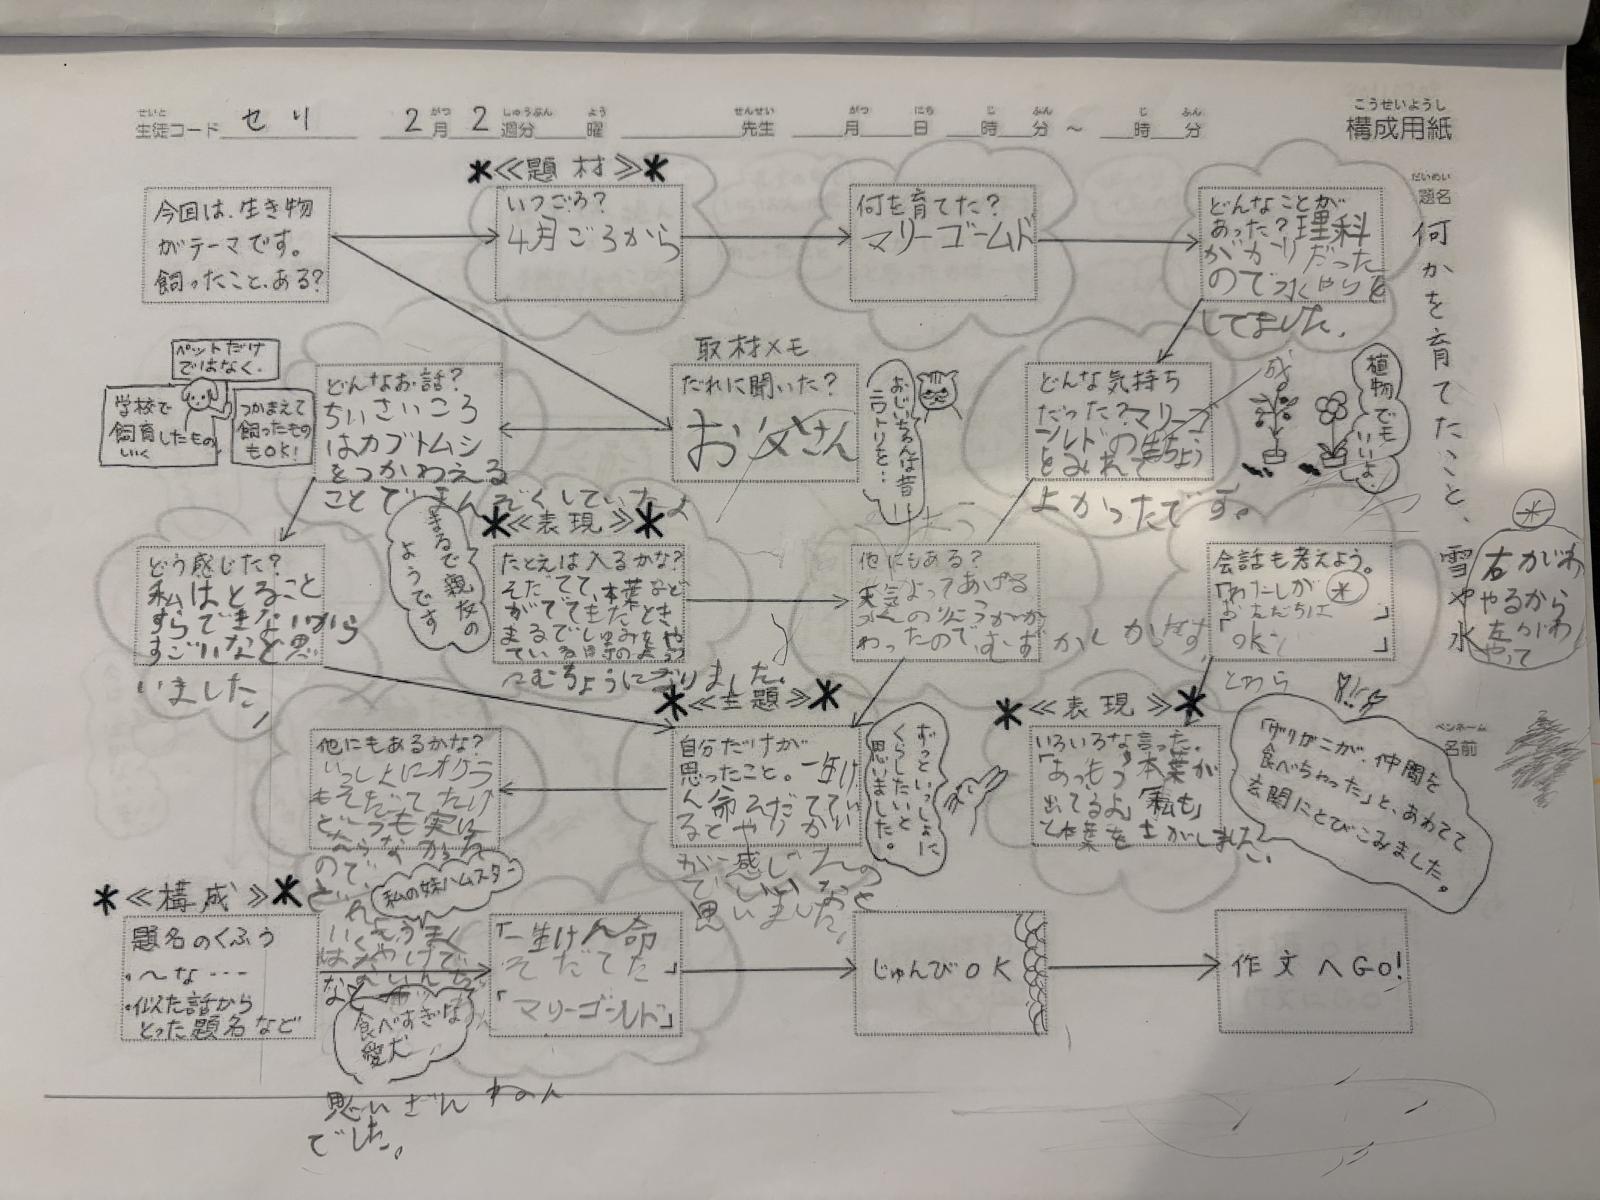 せいと
生徒コード セリ
2月 2週分 曜
がつ しゅうぶん よう
せんせい
先生
がつ にち じ ふん じ ふん
月 日 時 分 ～ 時 分
こうせいようし
構成用紙
だいめい
題名
何かを育てたこと、
雪や水
ペンネーム
名前
今回は、生き物
がテーマです。
飼ったこと、ある?
＊≪題材≫＊
いつごろ?
4月ごろから
何を育てた?
マリーゴールド
どんなことが
あった?理科
がかりだった
ので水やりを
してました。
ペットだけ
ではなく、
学校で
飼育したもの
いく
つかまえて
飼ったもの
もOK!
どんなお話?
ちいさいころ
はカブトムシ
をつかわえる
ことでまんぞくしていたよ
取材メモ
だれに聞いた?
お父さん
おじいちゃんは昔
ニワトリを…
どんな気持ち
だった?マリーゴ
ールドの成ちょう
をみれて
よかったです。
植物でも
いいよ。
どう感じた?
私はとること
すらできないから
すごいなと思
いました。
まるで親友の
ようです
＊≪表現≫＊
たとえは入るかな?
そだてて、本葉など
がでてきたとき
まるで
こむちょうになりました。
他にもある?
天気によってあげる
水の
わったのでむずかしかったです。
会話も考えよう。
「わたしが＊」
おともだちは
「OK」
とわら
＊
右がわ
やるから
左がわ
やって
他にもあるかな?
いっしょにオクラ
もそだてたけ
ど
ので、
＊≪主題≫＊
自分だけが
思ったこと。一生け
ん命そだててい
るとやっ
が感じ
で思いました。
ずっといっしょに
くらしたいと
思いました。
＊≪表現≫＊
いろいろな「言った。」
「あっもう本葉が
出てるよ」「私も」
て本葉を
「ザリガニが、仲間を
食べちゃった」と、あわてて
玄関にとびこみました。
＊≪構成≫＊
題名のくふう
・～な…
・似た話から
とった題名など
私の妹ハムスター
食べすぎな
愛犬
思いざんねん
でした。
「一生けん命
そだてた」
「マリーゴールド」
じゅんびOK
作文へGO!